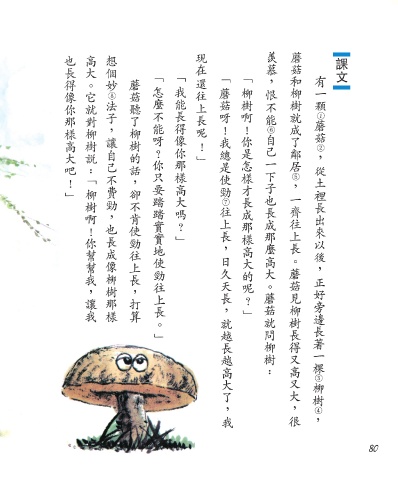 課文
有一顆①蘑菇②，從土裡長出來以後，正好旁邊長著一棵③柳樹④，
蘑菇和柳樹就成了鄰居⑤，一齊往上長。蘑菇見柳樹長得又高又大，很
羨慕，恨不能⑥自己一下子也長成那麼高大。蘑菇就問柳樹：
「柳樹啊！你是怎樣才長成那樣高大的呢？」
「蘑菇呀！我總是使勁⑦往上長，日久天長，就越長越高大了，我
現在還往上長呢！」
「我能長得像你那樣高大嗎？」
「怎麼不能呀？你只要踏踏實實地使勁往上長。」
蘑菇聽了柳樹的話，卻不肯使勁往上長，打算
想個妙⑧法子，讓自己不費勁，也長成像柳樹那樣
高大。它就對柳樹說：「柳樹啊！你幫幫我，讓我
也長得像你那樣高大吧！」
80